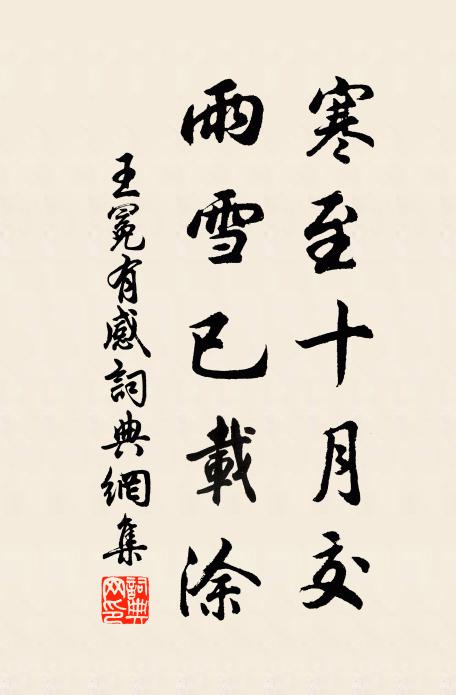 寒至十月交
雨雪已載涂
王冕有感詞典網集
詞典網印